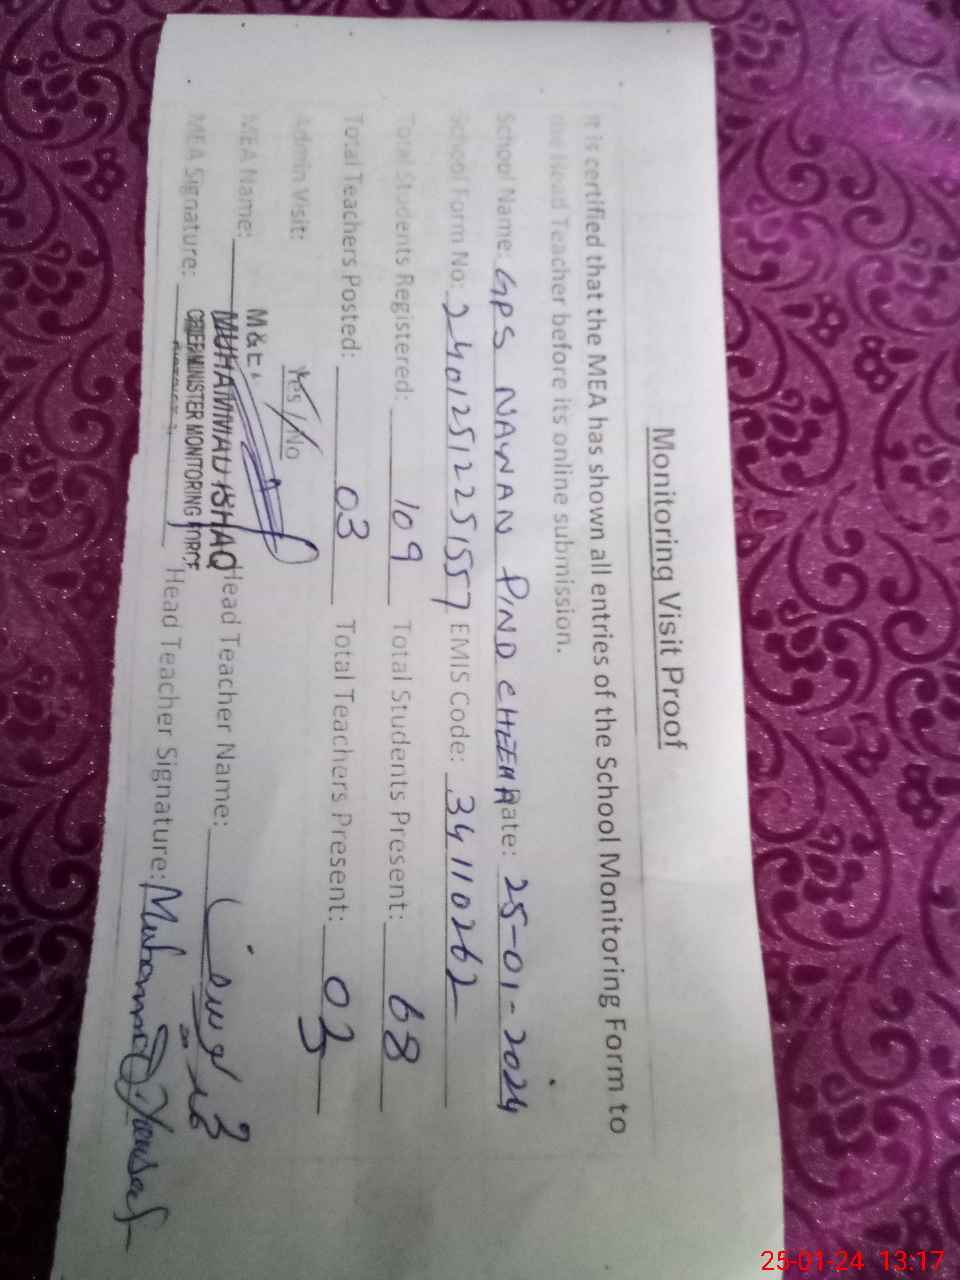 Monitoring Visit Proof
It is certified that the MEA has shown all entries of the School Monitoring Form to
the Head Teacher before its online submission.
School Name: GPS NAYNAN PIND CHEEMA Date: 25-01-2024
School Form No: 2401251225157 EMIS Code: 34110262
Total Students Registered: 109 Total Students Present: 68
Total Teachers Posted: 03 Total Teachers Present: 03
Admin Visit: Yes / No
MEA Name: MUHAMMAD ISHAQ Head Teacher Name: محمد یوسف
MEA Signature: CHIEF MINISTER MONITORING FORCE Head Teacher Signature: Muhammad Yousaf
25-01-24 13:17